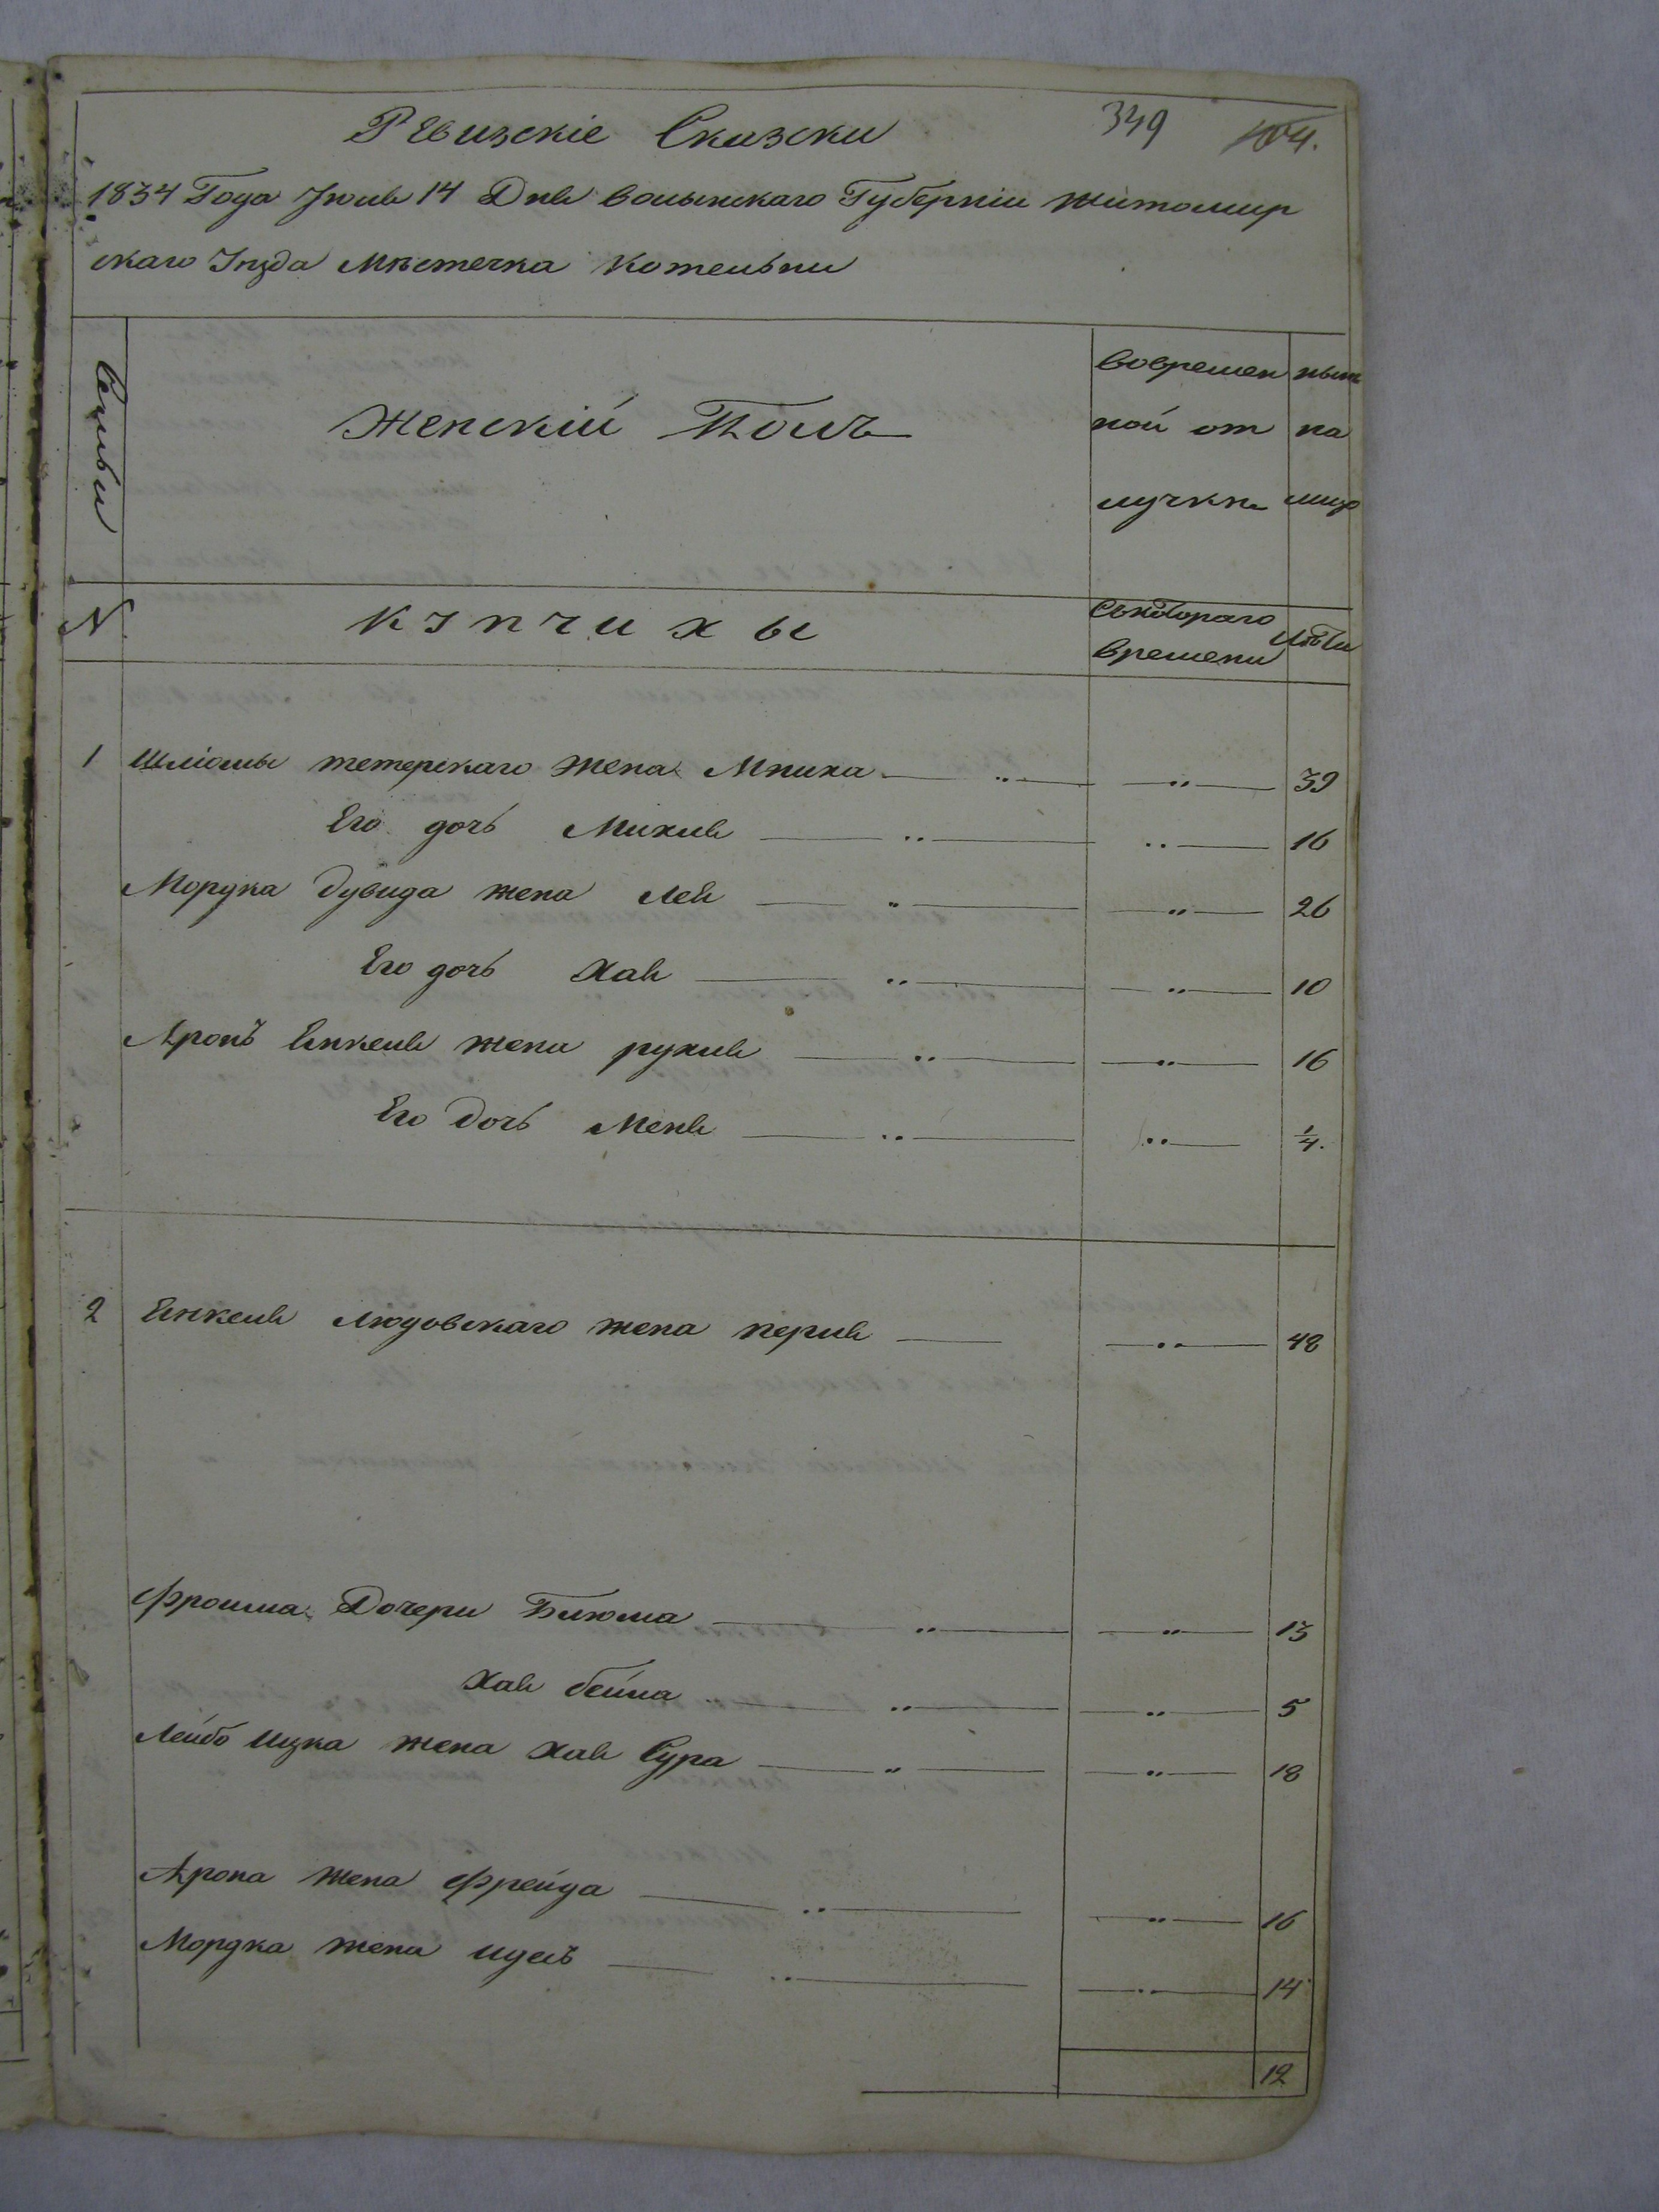 349 104.
Ревизскіе Сказски
1834 Года Июля 14 Дня волынскаго Губерніи житомир
скаго Уезда Мѣстечка Котельни
Семьи
Женскій Полъ
вовремен
ной от
лучкѣ
нын
на
лицо
N
Купчихы
Съкотораго
времени
Лѣты
1 Шліомы тетерскаго жена Мниха — „ — — „ — 39
Его дочь Михля — „ — „ — 16
Мордка дувида жена Лея — „ — — „ — 26
Его дочь Хая — „ — — „ — 10
Аронъ Енкеля жена рухля — „ — — „ — 16
Его дочь Меня — „ — „ — 1/4.
2 Енкеля людовскаго жена перля — — „ — 48
Фроима Дочери Блюма — „ — — „ — 13
Хая бейла — „ — — „ — 5
Лейбо Ицка жена хая Сура — „ — — „ — 18
Арона жена фрейда — „ — — „ — 16
Мордка жена идесъ — „ — — „ — 14
12